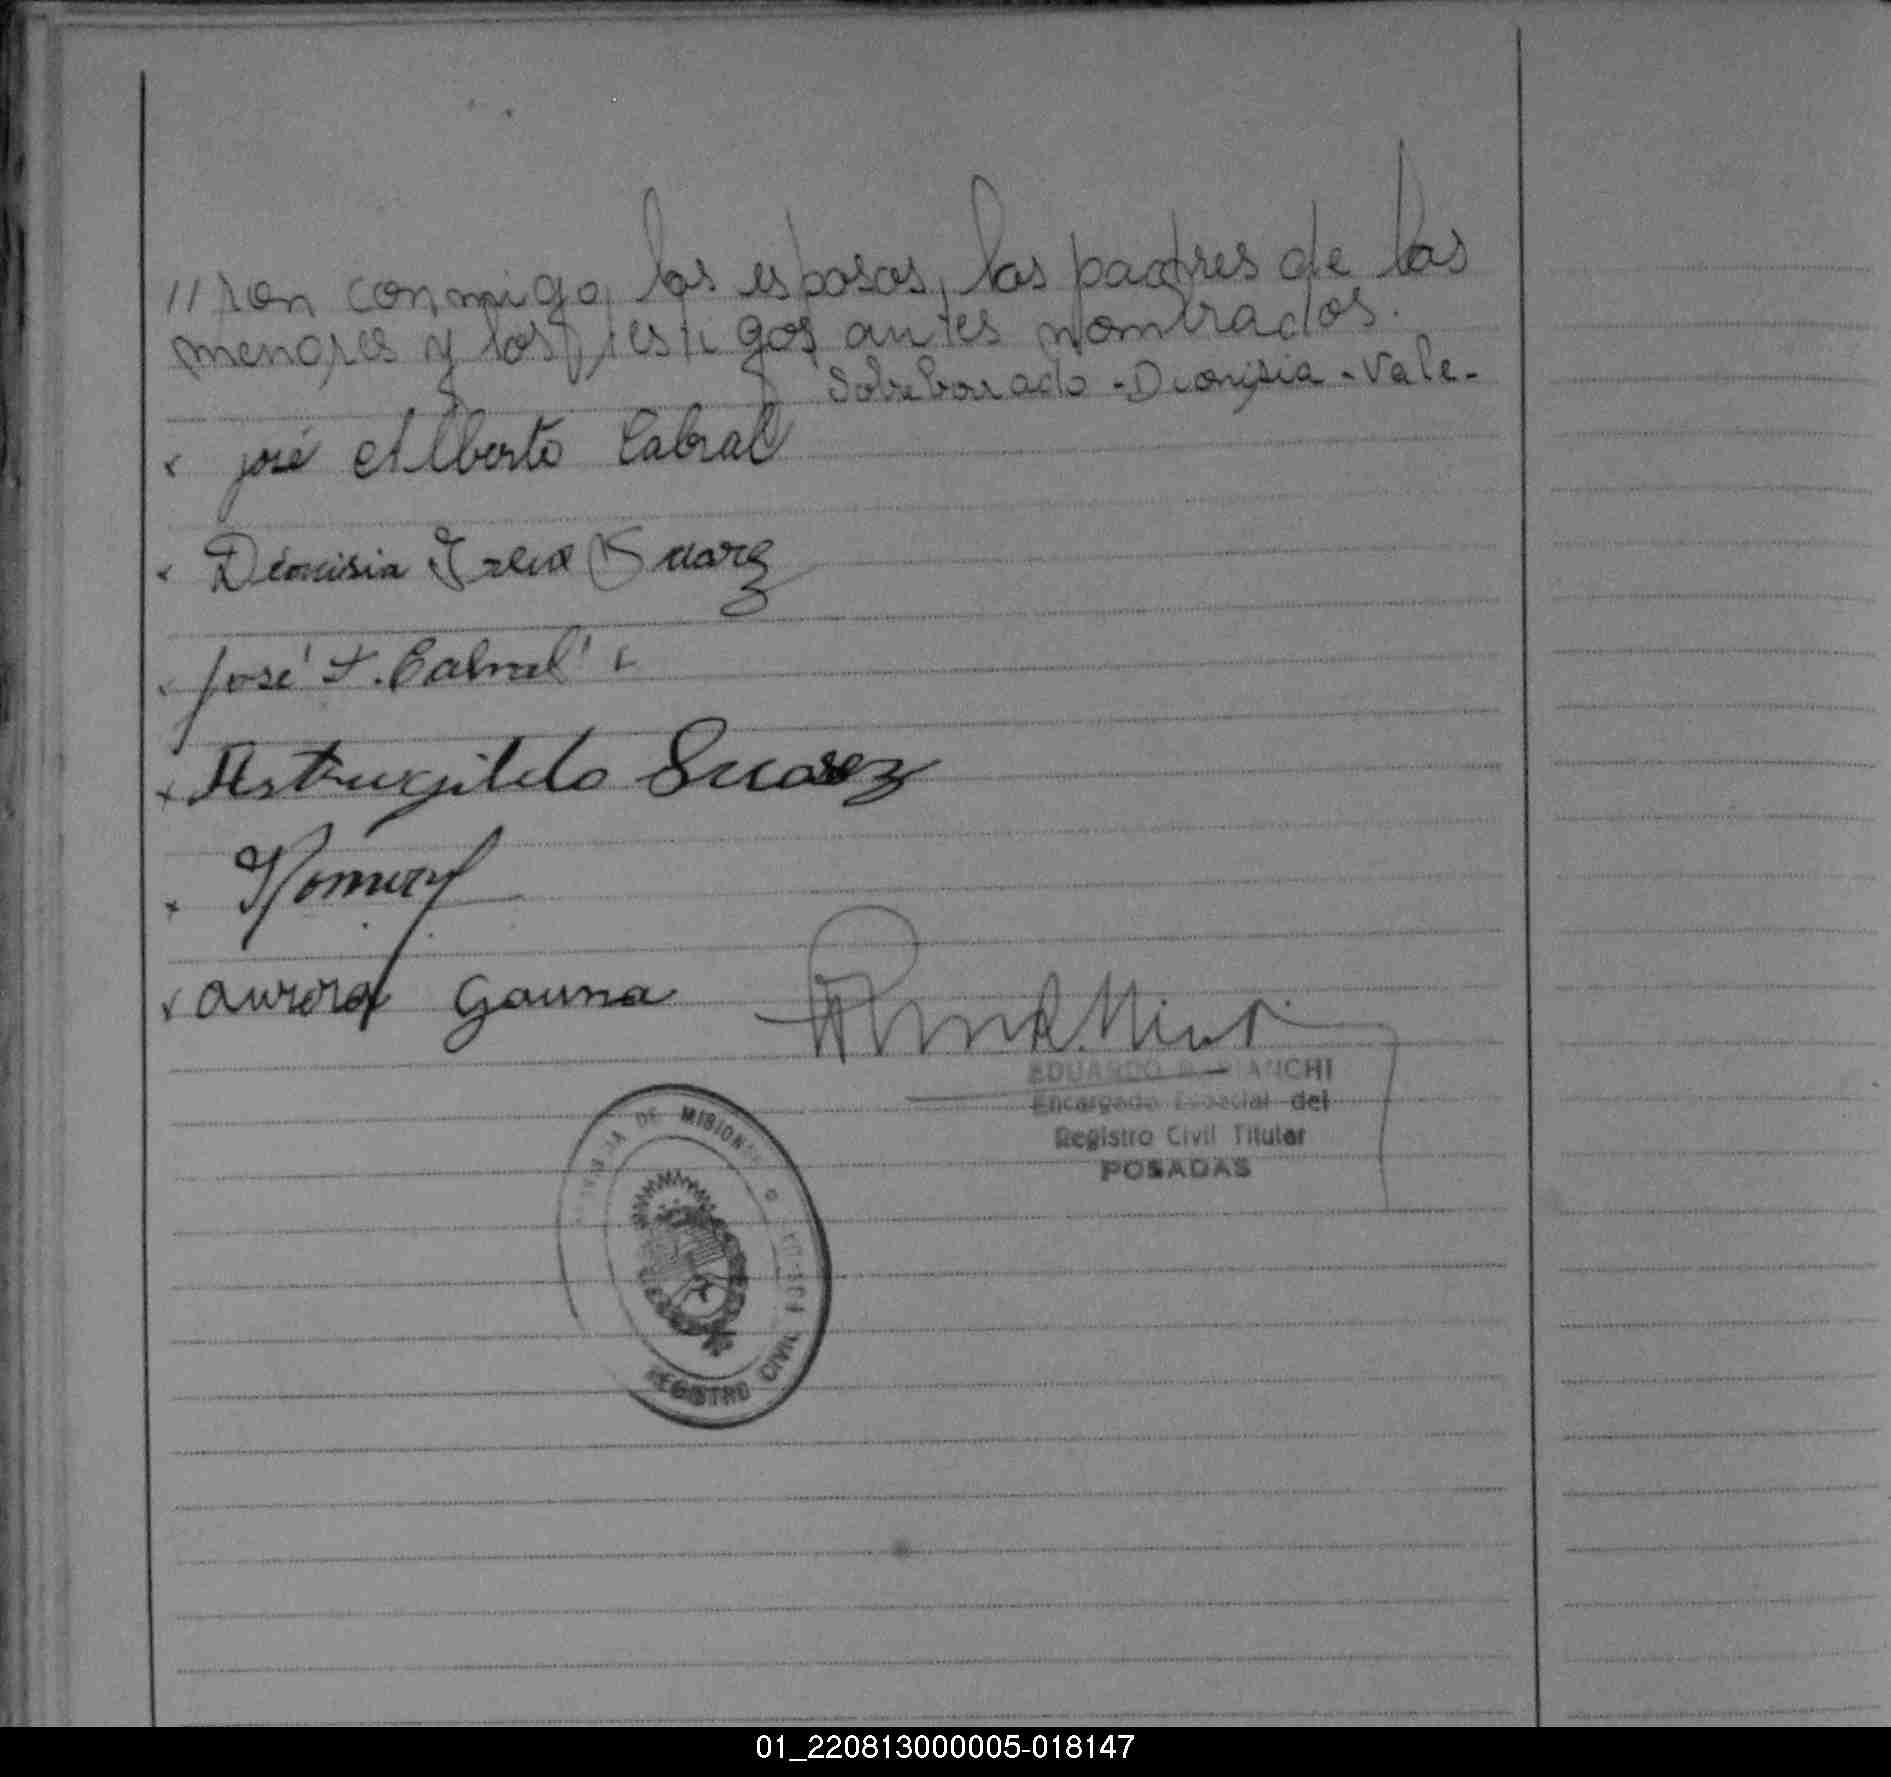 //ron conmigo, los esposos, los padres de los
menores y los testigos antes nombrados.
Sobreborrado - Dionisia - Vale -
José Alberto Cabral
Dionisia Suarez
José F. Cabral
Astrugildo Suarez
Aurora Gauna
EDUARDO R. BIANCHI
Encargado Especial del
Registro Civil Titular
POSADAS
PROVINCIA DE MISIONES
REGISTRO CIVIL
01_220813000005-018147